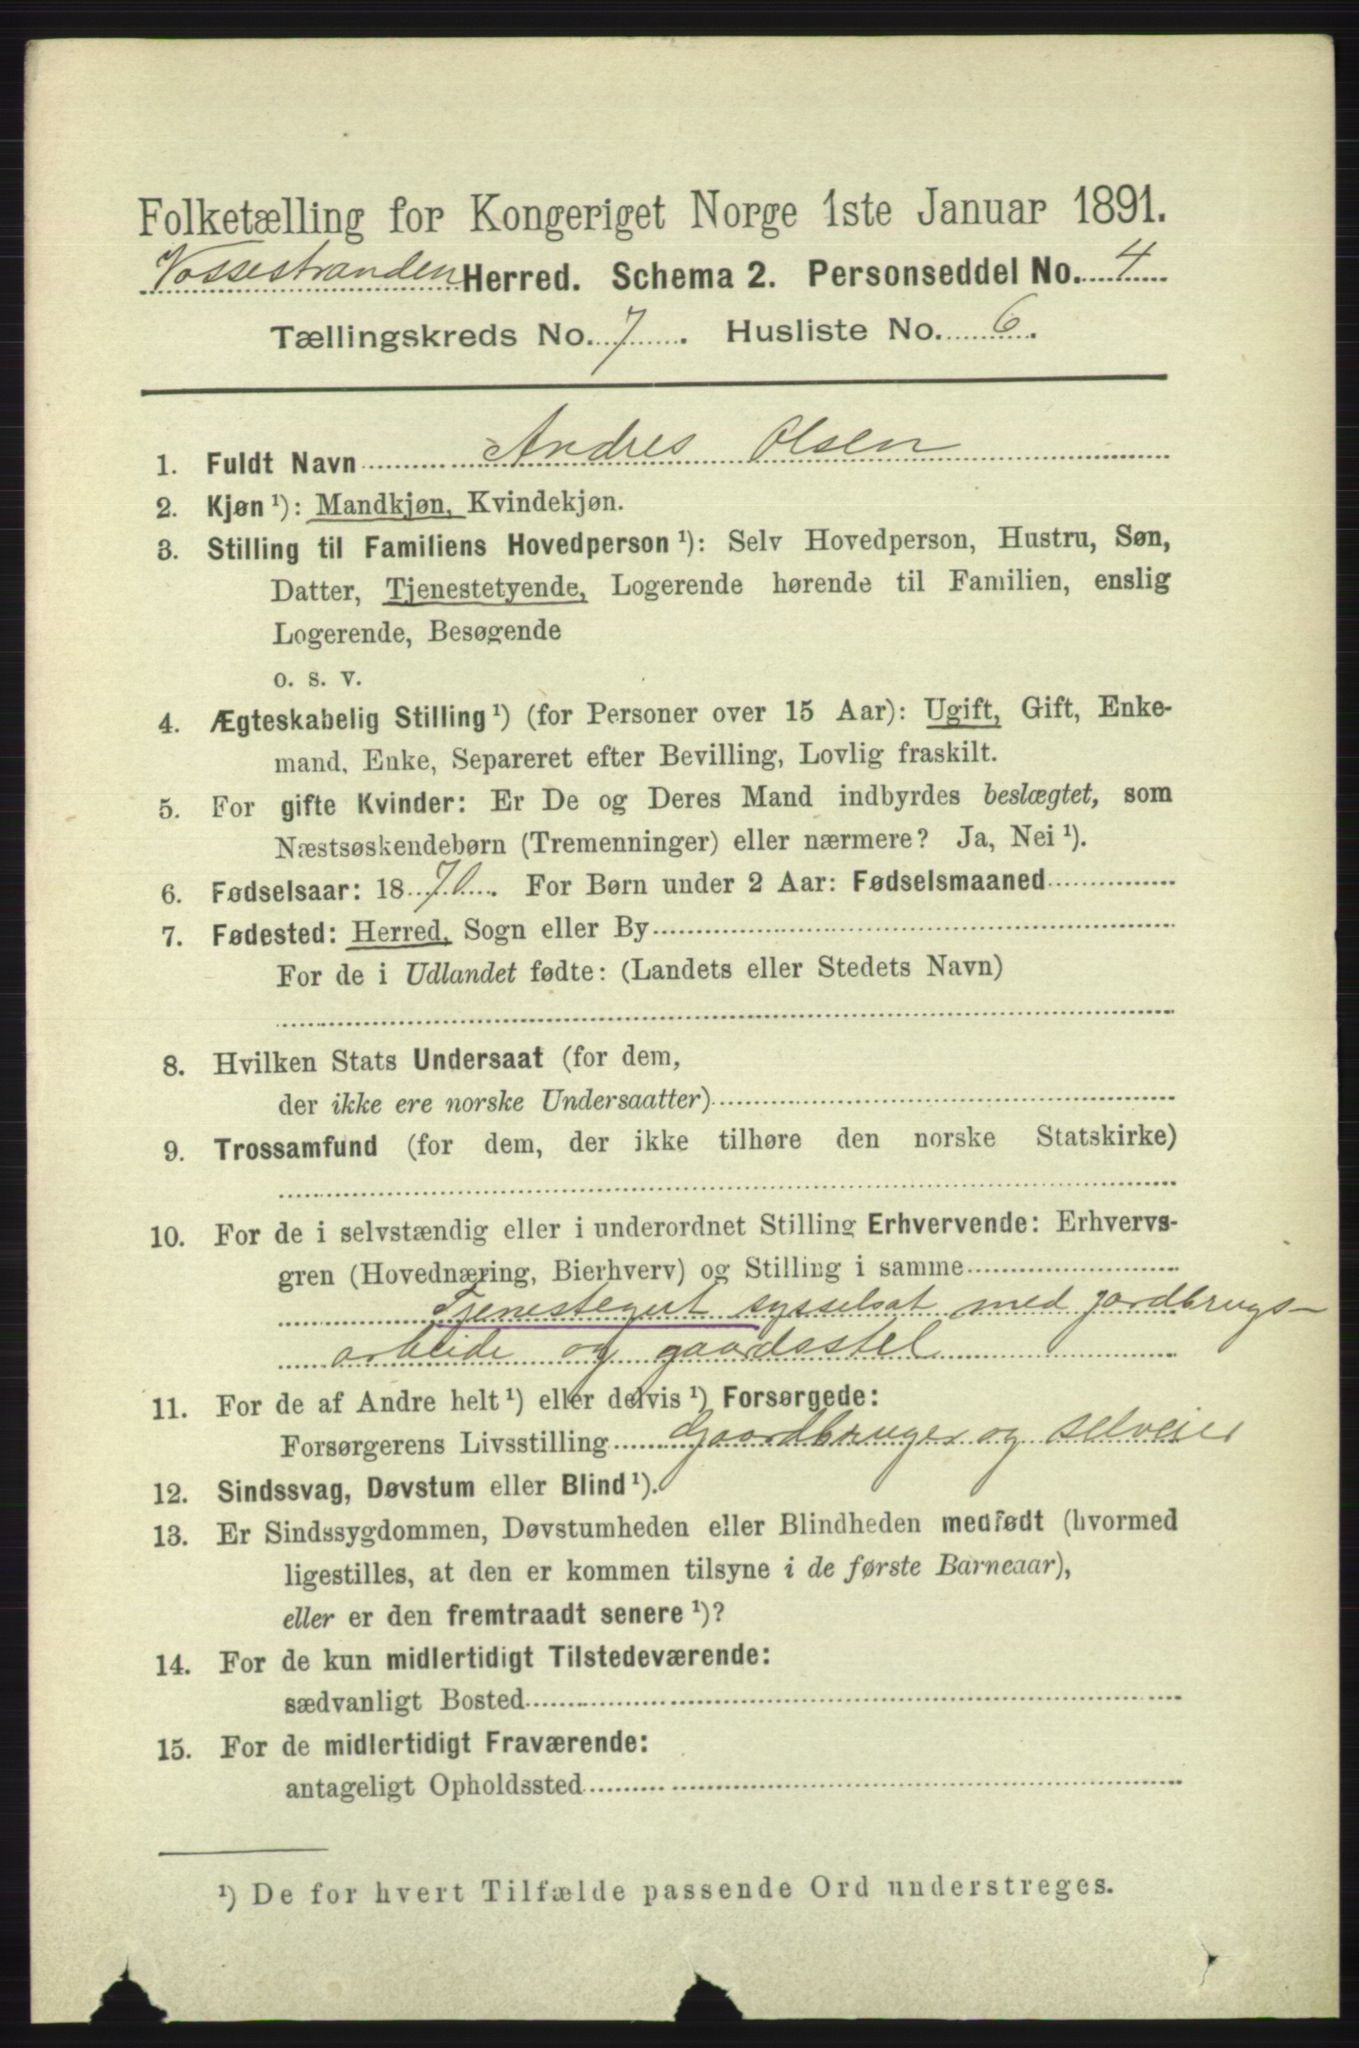 Folketælling for Kongeriget Norge 1ste Januar 1891.
Vossestranden Herred. Schema 2. Personseddel No. 4
Tællingskreds No. 7. Husliste No. 6.
1. Fuldt Navn Andres Olsen
2. Kjøn ¹): Mandkjøn, Kvindekjøn.
3. Stilling til Familiens Hovedperson ¹): Selv Hovedperson, Hustru, Søn,
Datter, Tjenestetyende, Logerende hørende til Familien, enslig
Logerende, Besøgende
o. s. v.
4. Ægteskabelig Stilling ¹) (for Personer over 15 Aar): Ugift, Gift, Enke-
mand, Enke, Separeret efter Bevilling, Lovlig fraskilt.
5. For gifte Kvinder: Er De og Deres Mand indbyrdes beslægtet, som
Næstsøskendebørn (Tremenninger) eller nærmere? Ja, Nei ¹).
6. Fødselsaar: 1870. For Børn under 2 Aar: Fødselsmaaned
7. Fødested: Herred, Sogn eller By
For de i Udlandet fødte: (Landets eller Stedets Navn)
8. Hvilken Stats Undersaat (for dem,
der ikke ere norske Undersaatter)
9. Trossamfund (for dem, der ikke tilhøre den norske Statskirke)
10. For de i selvstændig eller i underordnet Stilling Erhvervende: Erhvervs-
gren (Hovednæring, Bierhverv) og Stilling i samme
Tjenestegut sysselsat med jordbrugs-
arbeide og gaardsstel
11. For de af Andre helt ¹) eller delvis ¹) Forsørgede:
Forsørgerens Livsstilling Gaardbruger og selveier
12. Sindssvag, Døvstum eller Blind ¹).
13. Er Sindssygdommen, Døvstumheden eller Blindheden medfødt (hvormed
ligestilles, at den er kommen tilsyne i de første Barneaar),
eller er den fremtraadt senere ¹)?
14. For de kun midlertidigt Tilstedeværende:
sædvanligt Bosted
15. For de midlertidigt Fraværende:
antageligt Opholdssted
¹) De for hvert Tilfælde passende Ord understreges.